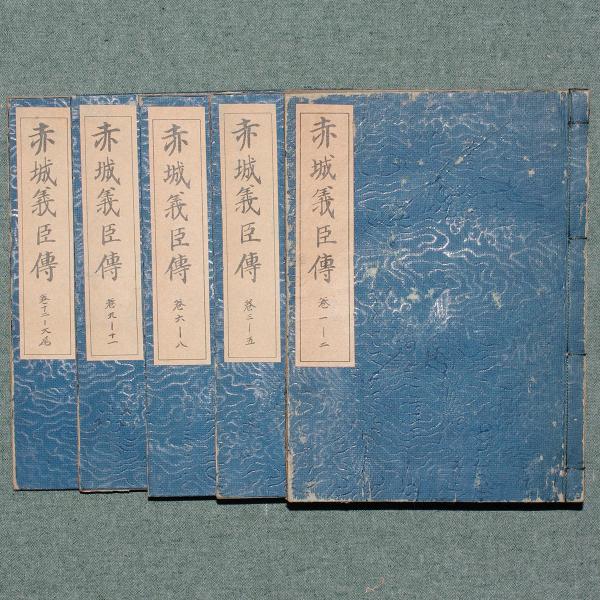 赤城義臣傳
巻一－二
赤城義臣傳
巻三－五
赤城義臣傳
巻六－八
赤城義臣傳
巻九－十一
赤城義臣傳
巻十二－大尾